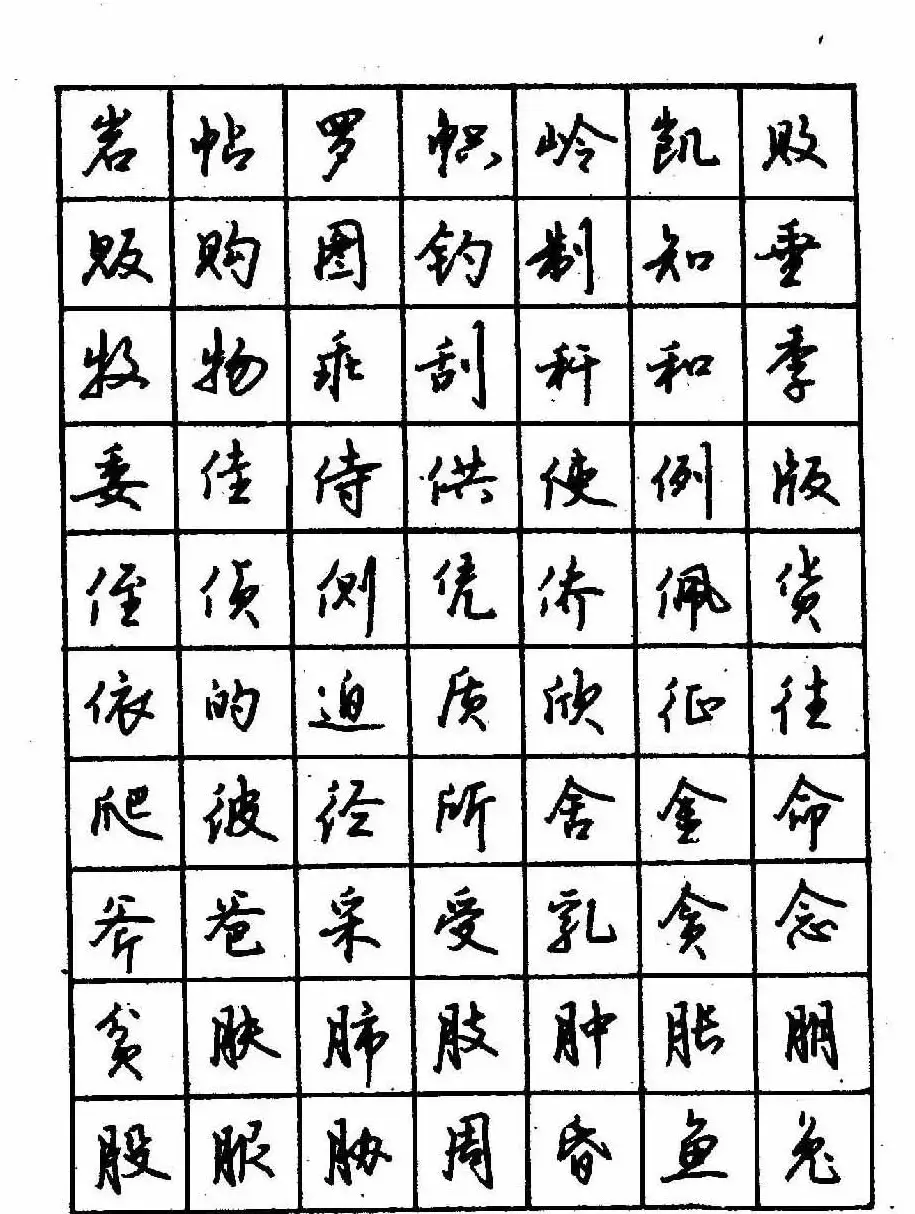 岩帖罗帜岭凯败
贩购图钓制知垂
牧物乖刮秆和季
委佳侍供使例版
侄侦侧凭侨佩货
依的迫质欣征往
爬彼径所舍金命
斧爸采受乳贪念
贫肤肺肢肿胀朋
股服胁周昏鱼兔